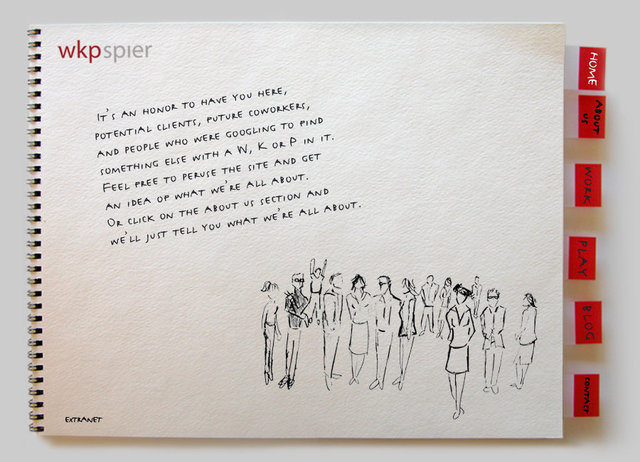 wkpspier
IT'S AN HONOR TO HAVE YOU HERE,
POTENTIAL CLIENTS, FUTURE COWORKERS,
AND PEOPLE WHO WERE GOOGLING TO FIND
SOMETHING ELSE WITH A W, K OR P IN IT.
FEEL FREE TO PERUSE THE SITE AND GET
AN IDEA OF WHAT WE'RE ALL ABOUT.
OR CLICK ON THE ABOUT US SECTION AND
WE'LL JUST TELL YOU WHAT WE'RE ALL ABOUT.
EXTRANET
HOME
ABOUT
US
WORK
PLAY
BLOG
CONTACT